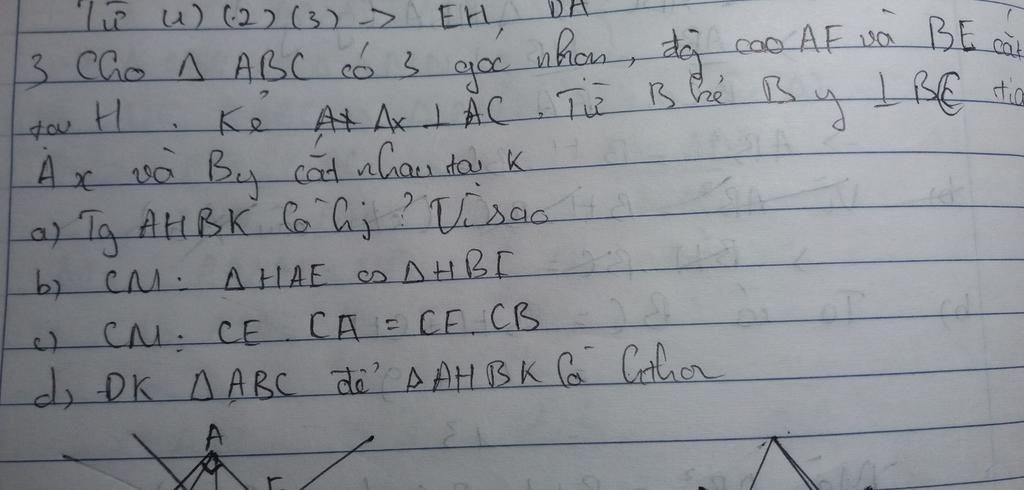 Từ (1) (2) (3) → EH, DA
3 Cho Δ ABC có 3 góc nhọn, đg cao AF và BE cắt
tại H. Kẻ Ax ⊥ AC. Từ B kẻ By ⊥ BC tia
Ax và By cắt nhau tại K
a) Tg AHBK là hj? Vì sao
b) CM: ΔHAE ∽ ΔHBF
c) CM: CE. CA = CF. CB
d) ĐK ΔABC để ΔAHBK là hthoi
A